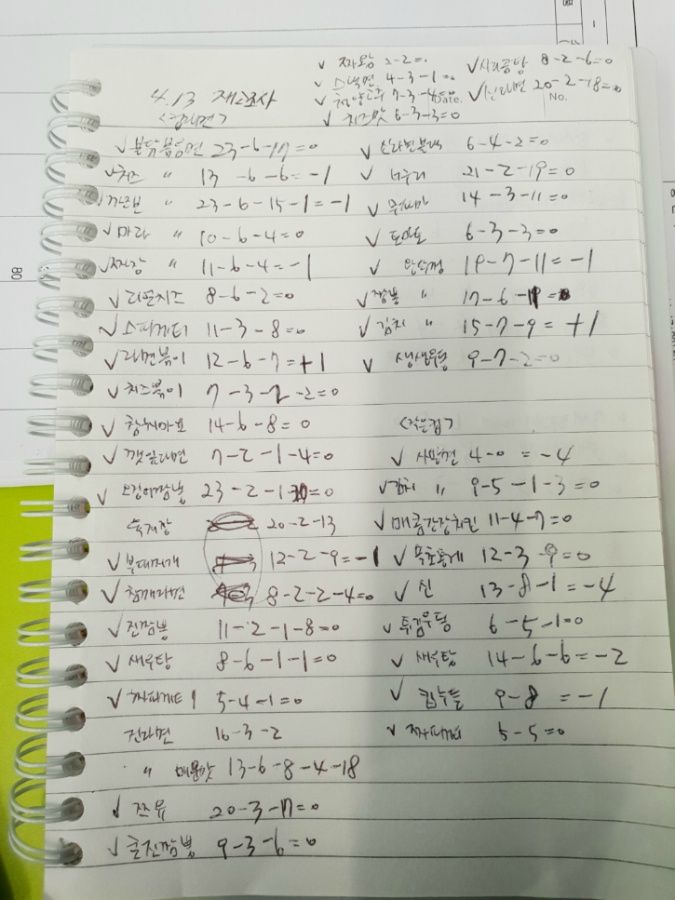 4.13 재고조사
✓ 짜요짱 2-2=0
✓ 스낵면 4-3-1=0
✓ 7-3-4=0
✓ 치즈맛 6-3-3=0
✓ 사리곰탕 8-2-6=0
✓ 신라면 20-2-18=0
Date.
No.
<컵라면>
✓ 불닭볶음면 23-6-17=0
✓ 치즈 〃 13-6-6=-1
✓ 까르보 〃 23-6-15-1=-1
✓ 마라 〃 10-6-4=0
✓ 짜장 〃 11-6-4=-1
✓ 치즈 8-6-2=0
✓ 스파게티 11-3-8=0
✓ 라면볶이 12-6-7=+1
✓ 치즈볶이 7-3-2-2=0
✓ 참치마요 14-6-8=0
✓ 깻잎라면 7-2-1-4=0
✓ 오징어짬뽕 23-2-1-20=0
육개장 20-2-13
✓ 부대찌개 12-2-9=-1
✓ 참깨라면 8-2-2-4=0
✓ 진짬뽕 11-2-1-8=0
✓ 새우탕 8-6-1-1=0
✓ 짜파게티 5-4-1=0
진라면 16-3-2
〃 매운맛 13-6-8-4-18
✓ 쯔유 20-3-17=0
✓ 진짬뽕 9-3-6=0
✓ 신라면블랙 6-4-2=0
✓ 너구리 21-2-19=0
✓ 무파마 14-3-11=0
✓ 토마토 6-3-3=0
✓ 안성탕 19-7-11=-1
✓ 짬뽕 〃 17-6-11=0
✓ 김치 〃 15-7-9=+1
✓ 생생우동 9-7-2=0
<작은컵>
✓ 사발면 4-0=-4
✓ 김치 〃 9-5-1-3=0
✓ 매콤간장치킨 11-4-7=0
✓ 12-3-9=0
✓ 신 13-8-1=-4
✓ 튀김우동 6-5-1=0
✓ 새우탕 14-6-6=-2
✓ 컵누들 9-8=-1
✓ 짜파게티 5-5=0
80